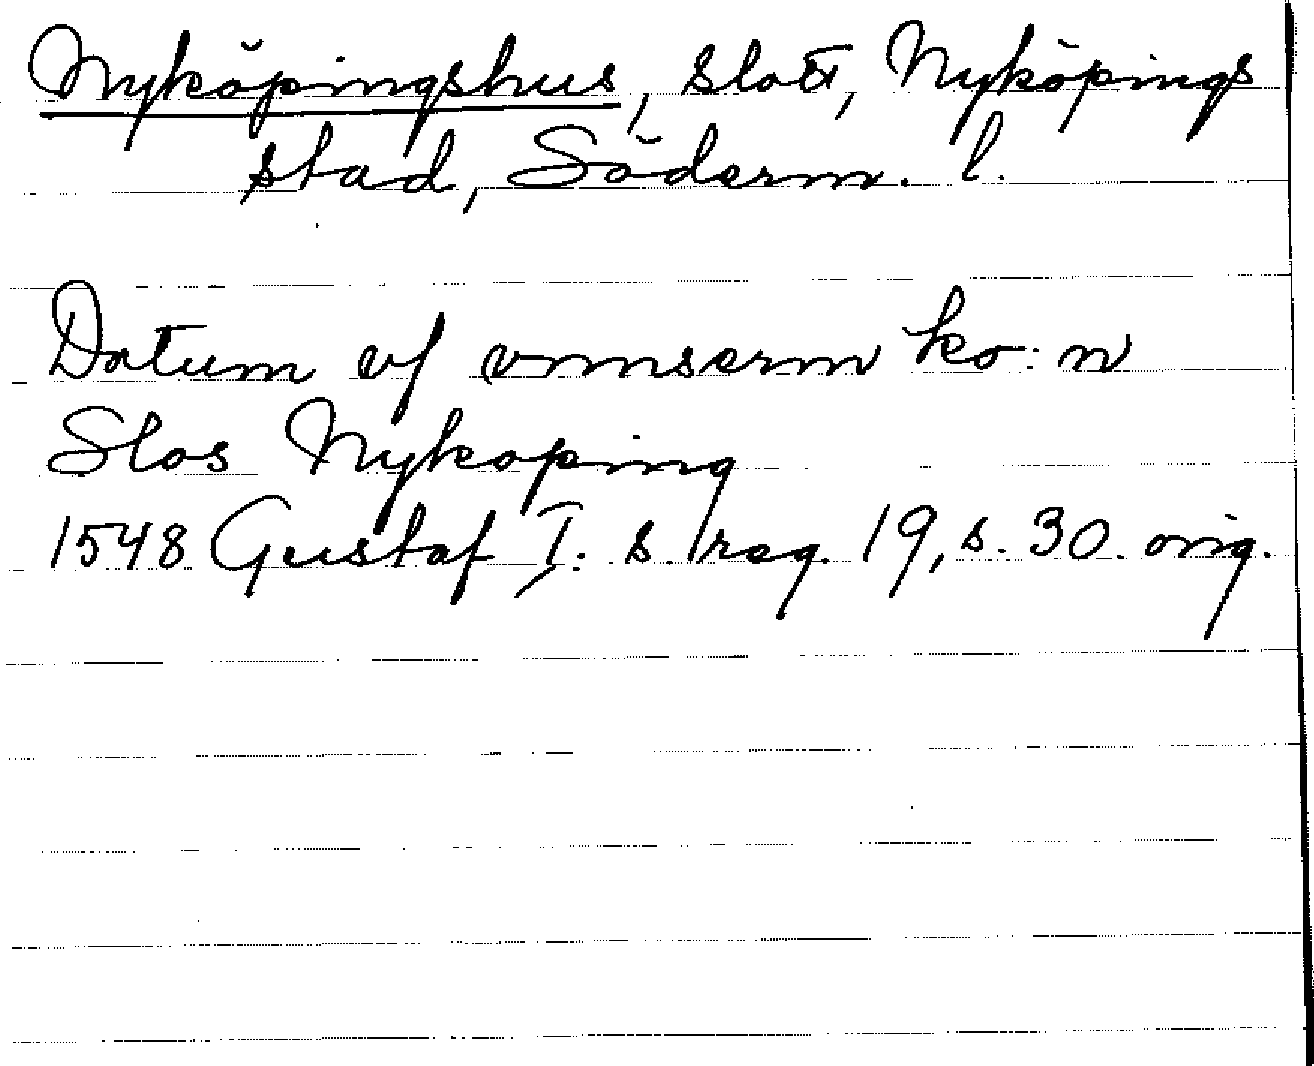 Nyköpingshus, slott, Nyköpings
stad, Söderm. l.
Datum vf vmserm ko: n
Slos Nykoping
1548 Gustaf I: s reg. 19, s. 30. orig.